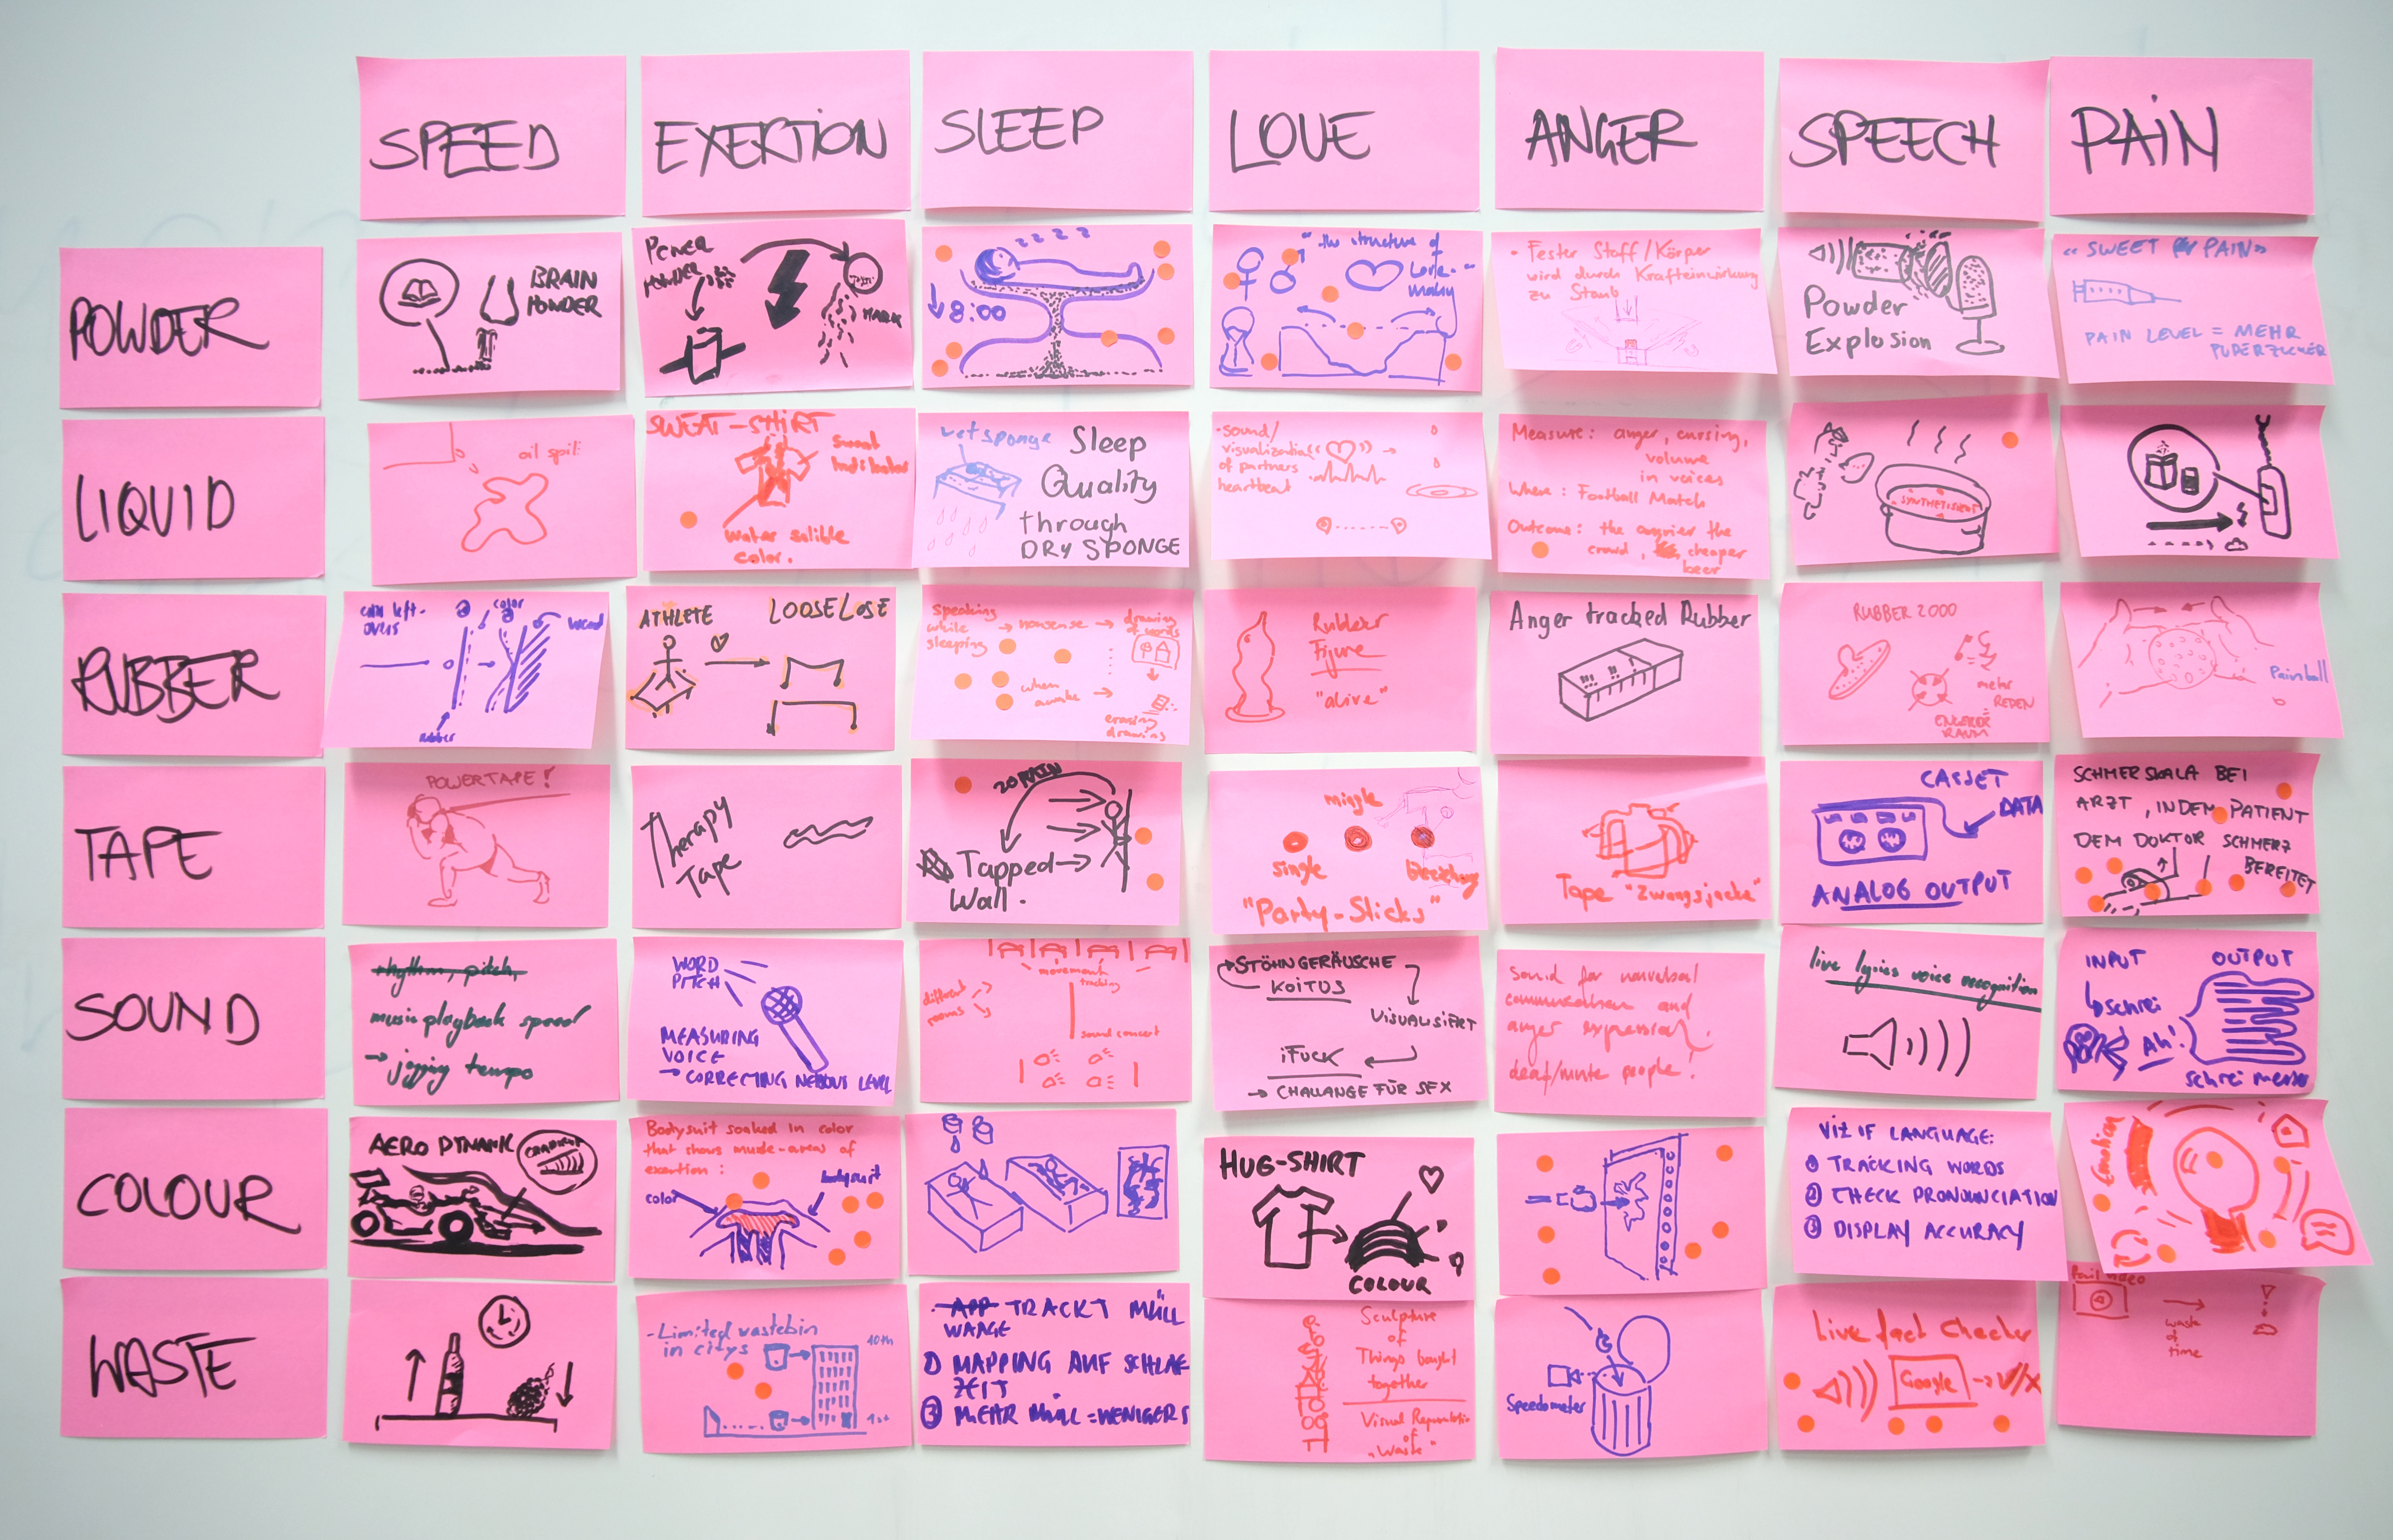 SPEED
EXERTION
SLEEP
LOVE
ANGER
SPEECH
PAIN
POWDER
BRAIN
POWDER
POWER
POWDER
z z z z
8:00
"the structure of
Love."
• Fester Stoff/Körper
wird durch Krafteinwirkung
zu Staub
Powder
Explosion
PAIN»
PAIN LEVEL = MEHR
PUDERZUCKER
LIQUID
oil spill
SWEAT-SHIRT
sweat
indikator
water solible
color.
wet sponge
Sleep
Quality
through
DRY SPONGE
• sound/
visualization
of partners
heartbeat
Measure: anger, cursing,
volume
in voices
Where: Football Match
Outcome: the angrier the
crowd, cheaper
beer
SYNTHETISIERT
RUBBER
color
wood
rubber
ATHLETE
LOOSE LOSE
speaking
while
sleeping
→ nonsense →
drawing
of words
when
awake →
erasing
drawing
Rubber
Figure
"alive"
Anger tracked Rubber
RUBBER 2000
mehr
REDEN
ENGERER
RAUM
Painball
TAPE
POWERTAPE!
Therapy
Tape
20 MIN
Tapped →
Wall.
mingle
single
"Party-Sticks"
Tape "Zwangsjacke"
CASSET
DATA
ANALOG OUTPUT
SCHMERSKALA BEI
ARZT, INDEM PATIENT
DEM DOKTOR SCHMERZ
BEREITET
SOUND
rhythm, pitch,
music playback speed
→ jogging tempo
WORD
PITCH
MEASURING
VOICE
→ CORRECTING NERVOUS LEVEL
movement
tracking
different
rooms
sound concert
→ STÖHNGERÄUSCHE
KOITUS
VISUALISIERT
iFUCK
→ CHALLANGE FÜR SEX
Sound for nonverbal
communication and
anger expression/
deaf/mute people!
live lyrics voice recognition
INPUT
OUTPUT
schrei
Ah!
schrei messer
COLOUR
AERO DYNAMIK
Bodysuit soaked in color
that shows muscle-areas of
exertion:
color
bodysuit
HUG-SHIRT
COLOUR
VIZ IF LANGUAGE:
① TRACKING WORDS
② CHECK PRONOUNCIATION
③ DISPLAY ACCURACY
Emotion
WASTE
- Limited wastebin
in citys
10th
1st
APP TRACKT MÜLL
WAAGE
① MAPPING AUF SCHLAF
ZEIT
③ MEHR MÜLL = WENIGER S
Sculpture
of
Things bought
together
Visual Representatio
of
"Waste"
Speedometer
Live fact checker
Google → V/X
Fail video
waste
of
time